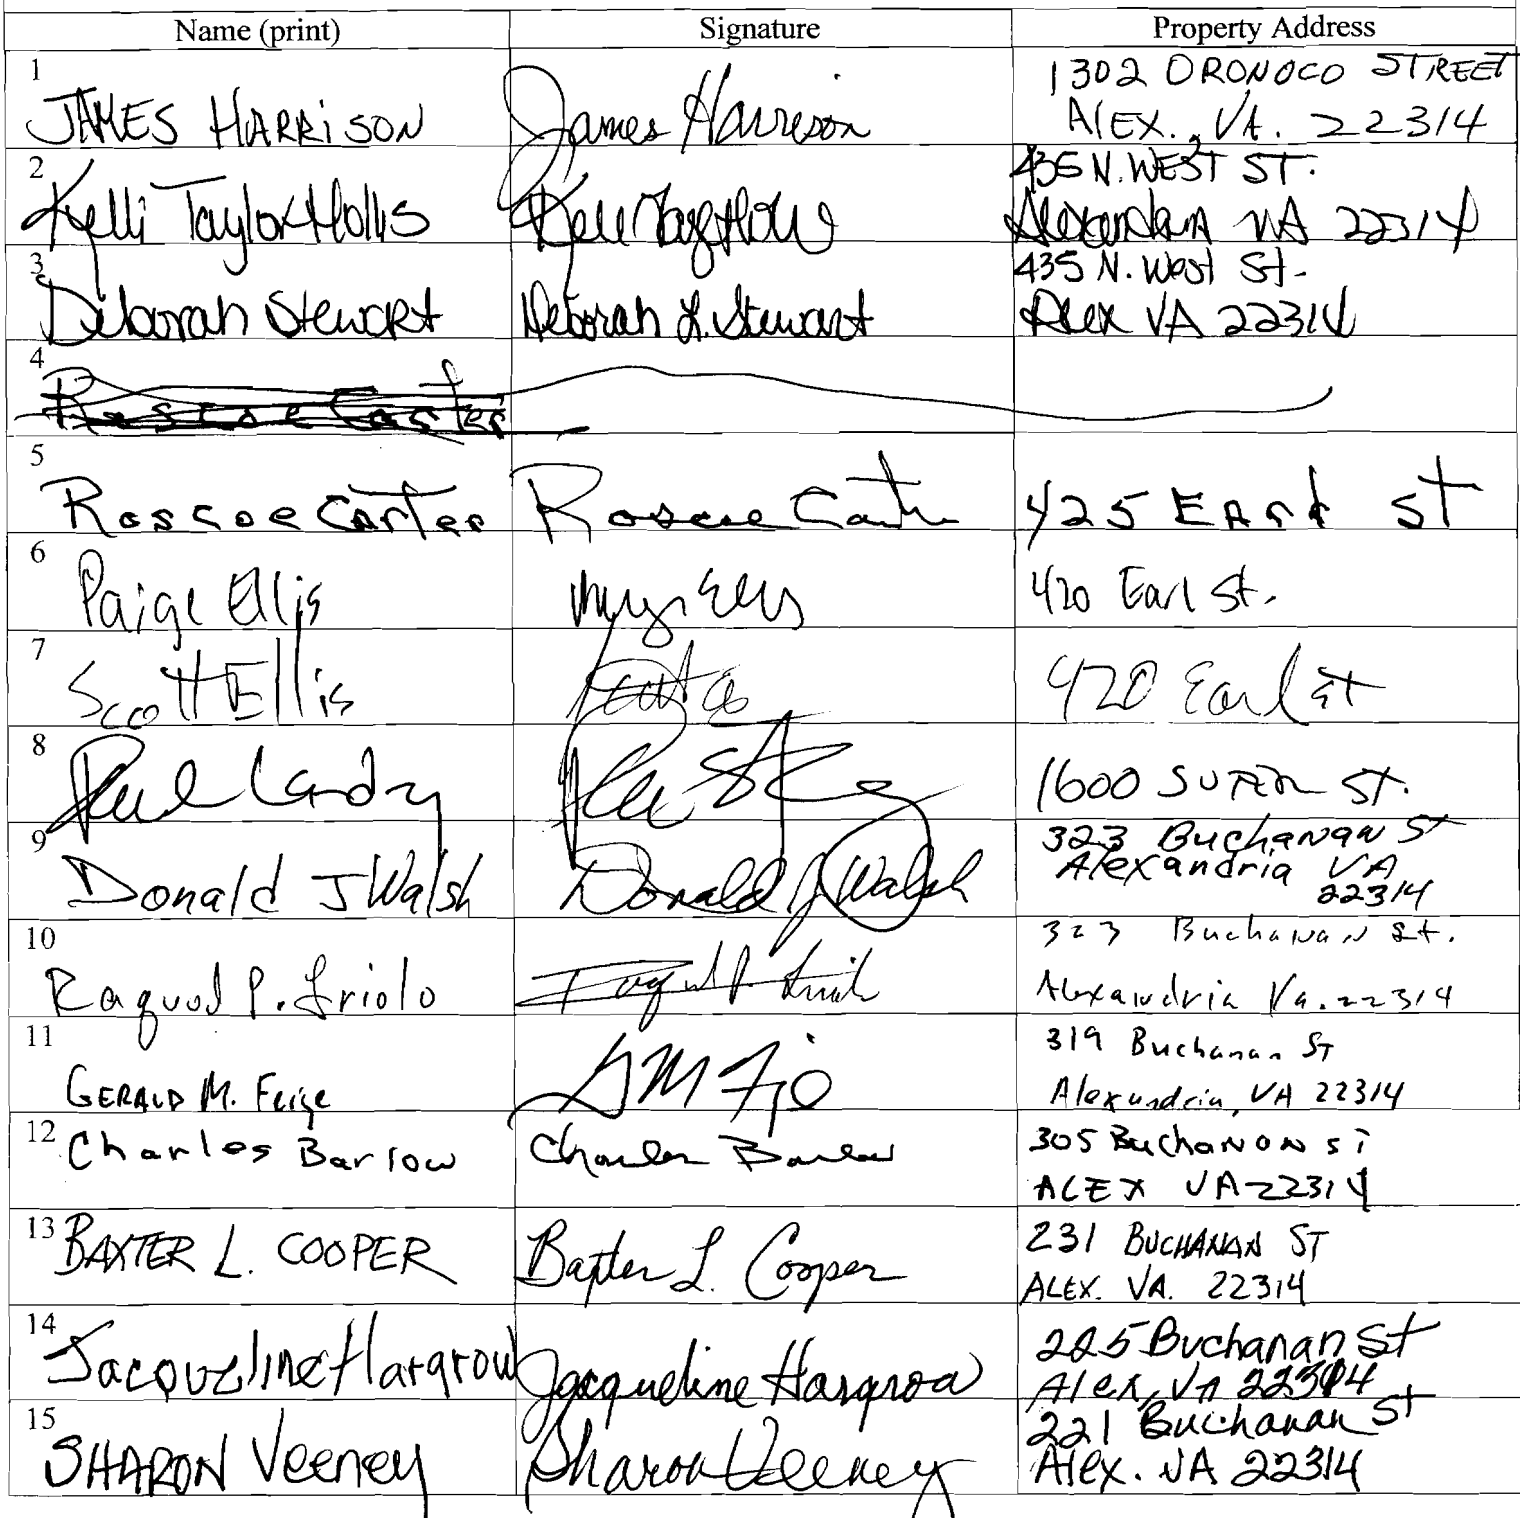 Name (print) Signature Property Address
1 JAMES HARRISON James Harrison 1302 ORONOCO STREET
ALEX., VA. 22314
2 Kelli Taylor-Hollis 435 N. WEST ST.
Alexandria VA 22314
3 Deborah Stewart Deborah L. Stewart 435 N. West St.
Alex VA 22314
4 Roscoe Carter
5 Roscoe Carter Roscoe Carter 425 EARL ST
6 Paige Ellis 420 Earl St.
7 Scott Ellis 420 Earl St
8 Paul Landry 1600 St.
9 Donald J Walsh Donald J Walsh 323 Buchanan St
Alexandria VA
22314
10 Raquel P. 323 Buchanan St.
Alexandria Va. 22314
11 GERALD M. Feige 319 Buchanan ST
Alexandria, VA 22314
12 Charles Barlow Charles Barlow 305 Buchanon ST
ALEX VA 22314
13 BAXTER L. COOPER Baxter L. Cooper 231 BUCHANAN ST
ALEX. VA. 22314
14 Jacqueline Hargrow Jacqueline Hargrow 225 Buchanan St
Alex, VA 22314
15 SHARON Veeney Sharon Veeney 221 Buchanan St
Alex. VA 22314